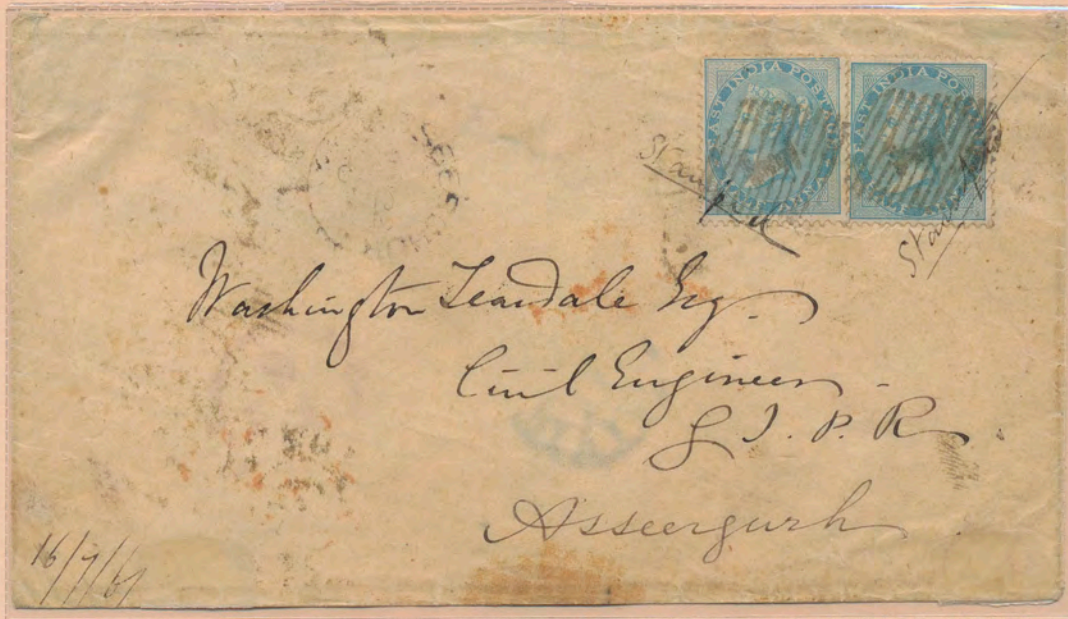 EAST INDIA POSTAGE
EAST INDIA POSTAGE
Stamped
Washington Teasdale Esq.
Civil Engineer
G. I. P. R
Asseergurh
16/7/67